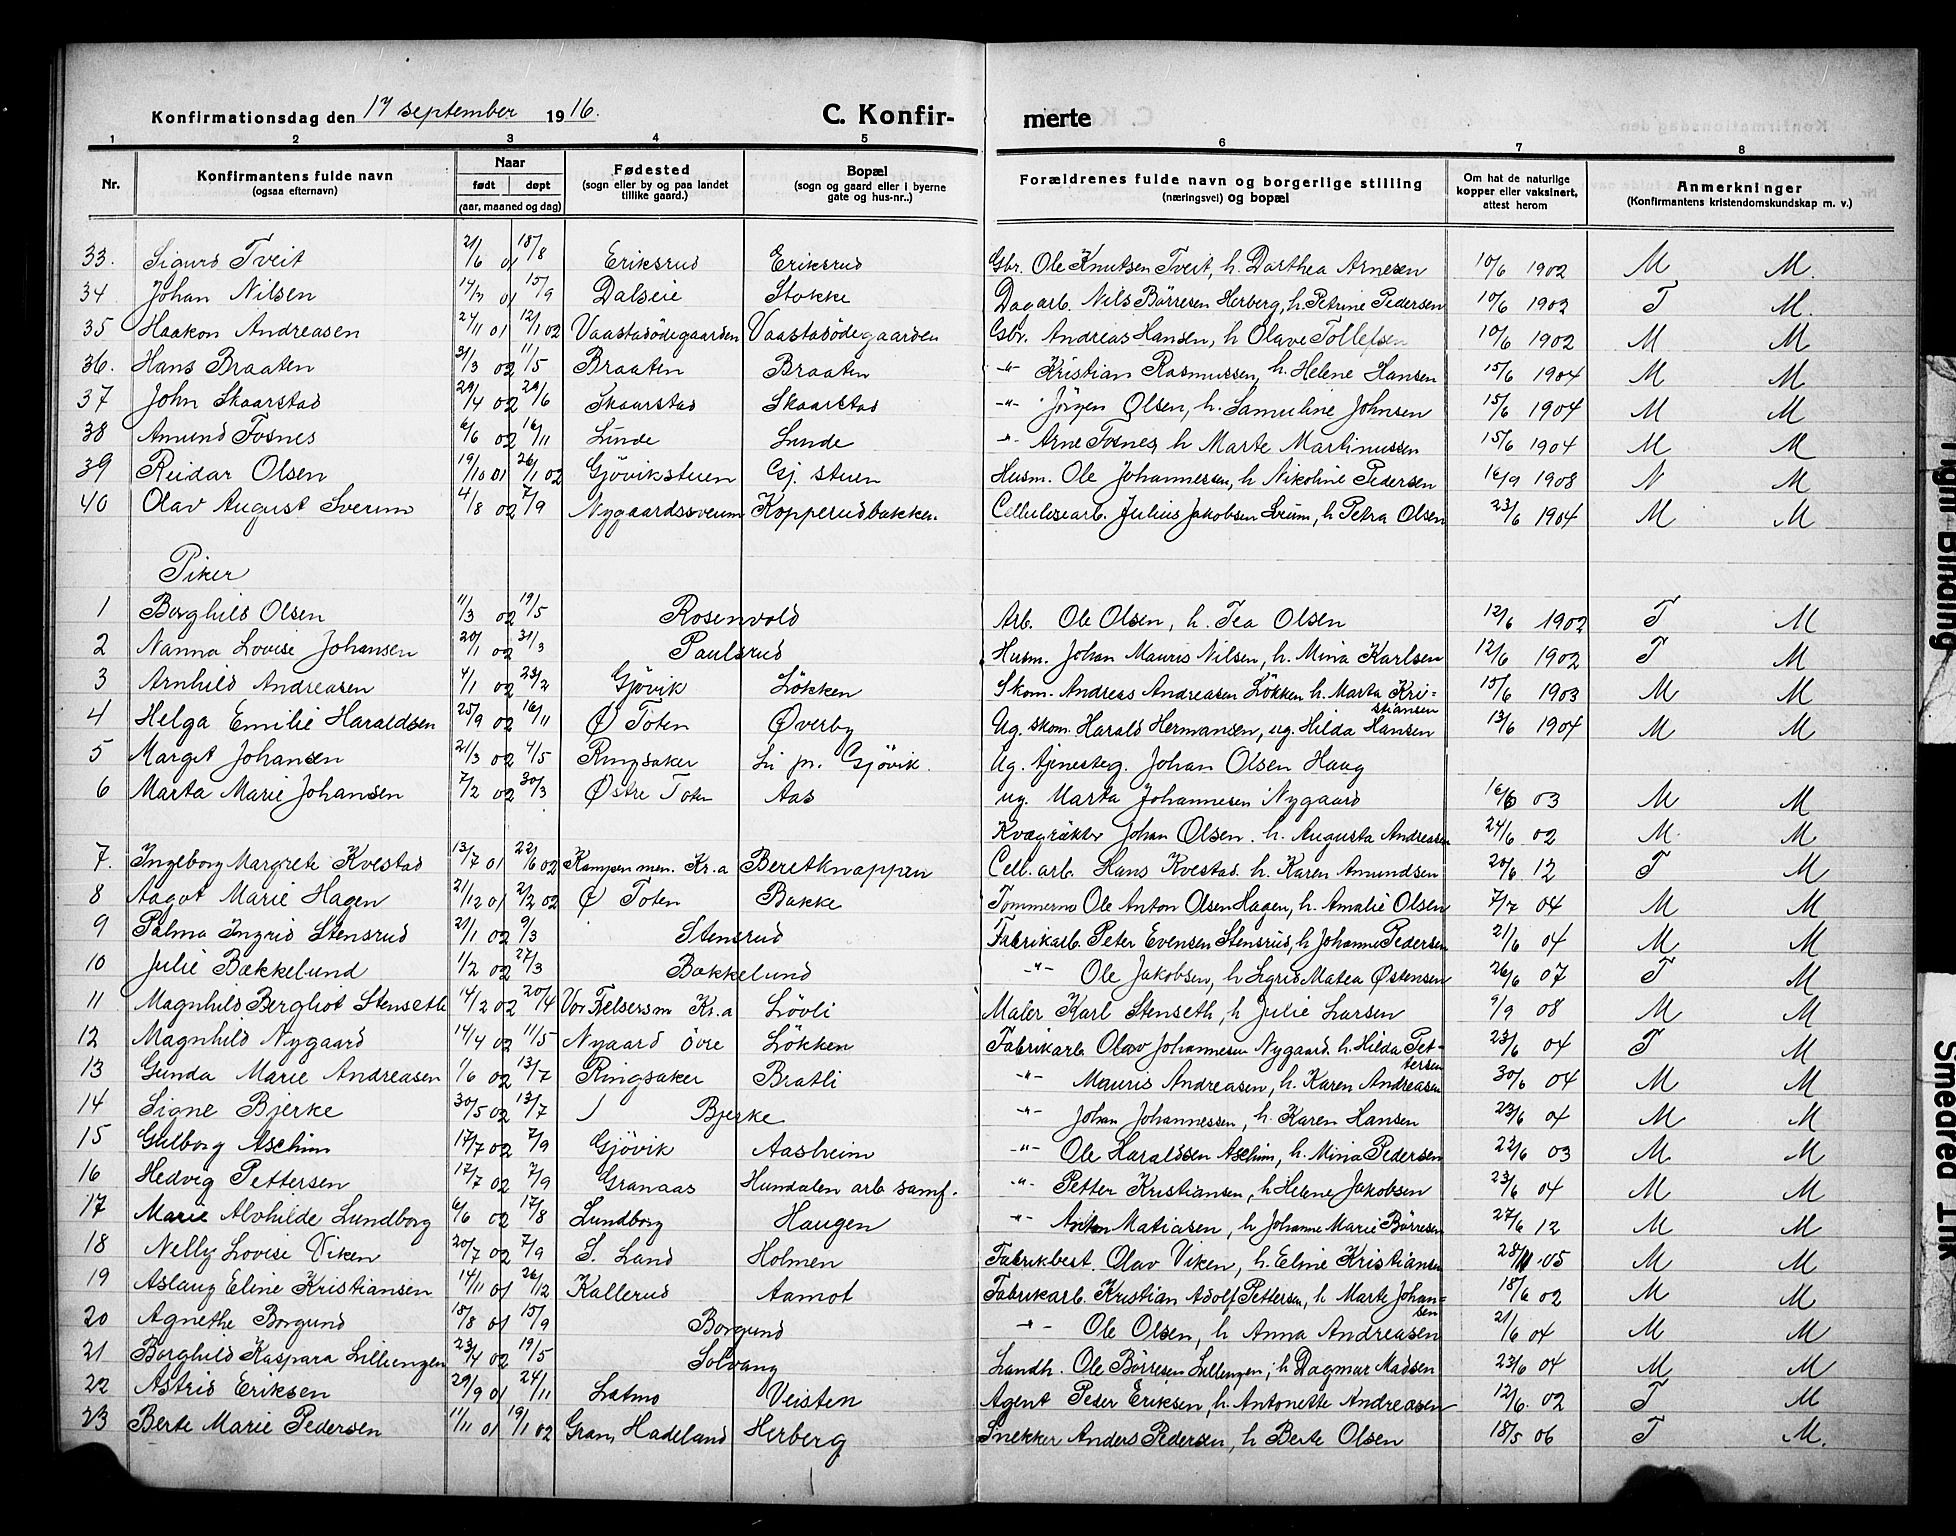 Konfirmationsdag den 17 september 1916. C. Konfirmerte
1 2 3 4 5 6 7 8
Nr. Konfirmantens fulde navn (ogsaa efternavn) Naar født døpt (aar, maaned og dag) Fødested (sogn eller by og paa landet tillike gaard.) Bopæl (sogn og gaard eller i byerne gate og hus-nr..) Forældrenes fulde navn og borgerlige stilling (næringsvei) og bopæl Om hat de naturlige kopper eller vaksinert, attest herom Anmerkninger (Konfirmantens kristendomskundskap m. v.)
33. Sigurd Tveit 21/6 01 18/8 Eriksrud Eriksrud Gbr. Ole Knutsen Tveit, h. Dorthea Arnesen 10/6 1902 M M.
34 Johan Nilsen 14/7 01 15/9 Dalseie Stokke Dagarb. Nils Börresen Herberg, h. Petrine Pedersen 10/6 1902 T M.
35 Haakon Andreasen 24/11 01 12/1 02 Vaastadödegaarden Vaastadödegaarden Gbr. Andreas Hansen, h Olave Tollefsen 10/6 1902 M M
36. Hans Braaten 31/3 02 11/5 Braaten Braaten -"- Kristian Rasmussen, h. Helene Hansen 15/6 1904 M M
37 John Skaarstad 29/4 02 29/6 Skaarstad Skaarstad -"- Jörgen Olsen, h. Samuline Johnsen 15/6 1904 M M
38 Amund Fosnes 6/6 02 16/11 Linde Linde -"- Arne Fosnes, h Marte Martinussen 15/6 1904 M M
39 Reidar Olsen 19/10 01 26/1 02 Gjövikstuen Gj. stuen Husm. Ole Johannessen, h Nikoline Pedersen 16/9 1908 N M
40 Olav August Sverum 4/8 02 7/9 Nygaardssveum Kopperudbakken. Cellulosearb. Julius Jakobsen Srum, h Petra Olsen 23/6 1904 M M
Piker
1 Borghild Olsen 11/3 02 19/5 Rosenvold Arb. Ole Olsen, h. Tea Olsen 12/6 1902 T M
2 Nanna Lovise Johansen 20/1 02 31/3 Paulsrud Husm. Johan Mauris Nilsen, h. Mina Karlsen 12/6 1902 T M
3 Arnhild Andreasen 4/1 02 23/2 Gjövik Lökken Skom. Andreas Andreasen Lökken h. Marta Kristiansen 15/6 1903 M M
4 Helga Emilie Haraldsen 25/9 02 16/11 Ø Toten Øverby Ug. skom. Harald Hermansen, ug. Hilda Hansen 13/6 1904 M M
5 Margit Johansen 21/3 02 4/5 Ringsaker Li pr. Gjövik. Ug. tjenesteg. Johan Olsen Haug
6 Marta Marie Johansen 7/2 02 30/3 Østre Toten Aas ug. Marta Johannesen Nygaard 16/6 03 M M
Kvægrökter Johan Olsen. h. Augusta Andreasen 24/6 02 M M
7. Ingeborg Margrete Kvestad 13/7 01 22/6 02 Kampen men. Kr.a Beretknappen Cell. arb. Hans Kvestad. h. Karen Amundsen 20/6 12 T M
8 Aagot Marie Hagen 21/12 01 2/2 02 Ø Toten Bakke Tömmerm Ole Anton Olsen Hagen, h. Amalie Olsen 7/7 04 M M
9 Palma Ingrid Stensrud 21/1 02 9/3 Stensrud Fabrikarb. Peter Evensen Stensrud, h Johanne Pedersen 21/6 04 M M
10 Julie Bækkelund 1/2 02 27/3 Bækkelund -"- Ole Jakobsen, h Sigrid Matea Østensen 26/6 07 T M
11 Magnhild Bergliot Stenseth 14/2 02 20/4 Vor Frelsers m Kr.a Lövli Maler Karl Stenseth, h Julie Larsen 9/9 08 M M
12 Magnhild Nygaard 14/4 02 11/5 Nyaard övre Lökken Fabrikarb. Olav Johannesen Nygaard. h. Hilda Pettersen 23/6 04 T M
13 Gunda Marie Andreasen 1/6 02 13/7 Ringsaker Bratli -"- Mauris Andreasen, h. Karen Andreasen 30/6 04 M M
14 Signe Bjerke 30/5 02 13/7 Bjerke -"- Johan Johannessen, h. Karen Hansen 23/6 04 M M
15 Gulborg Aschim 17/7 02 7/9 Gjövik Aasheim -"- Ole Haraldsen Aschim, h. Mina Pedersen 22/6 03 M M
16 Hedvig Pettersen 17/7 02 7/9 Granaas Hundalen arb samf. -"- Petter Kristiansen, h Helene Jakobsen 23/6 04 M M
17 Marie Alvhilde Lundborg 6/6 02 17/8 Lundborg Haugen -"- Anton Matiasen, h Johanne Marie Börresen 27/6 12 M M
18 Nelly Lovise Viken 20/7 02 7/9 S. Land Holmen Fabrikbest. Olav Viken, h. Eline Kristiansen 28/11 05 M M
19 Aslaug Eline Kristiansen 14/11 01 26/12 Kallerud Aamot Fabrikarb. Kristian Adolf Pettersen, h Marte Johansen 18/6 02 M M
20 Agnethe Borgund 15/8 01 15/9 Borgund -"- Ole Olsen, h Anna Andreasen 21/6 04 M M
21 Borghild Kaspara Lilliengen 23/4 02 19/5 Solvang Landh. Ole Börresen Lillengen, h Dagmar Madsen 23/6 04 M M
22 Astrid Eriksen 29/9 01 24/11 Latmo Veisten Agent Peder Eriksen, h. Antonette Andreasen 12/6. 02 T M
23 Berte Marie Pedersen 11/11 01 19/1 02 Gran, Hadeland Herberg Snekker Anders Pedersen, h Berte Olsen 18/5 06 T M.
Tight Binding
Smeared Ink